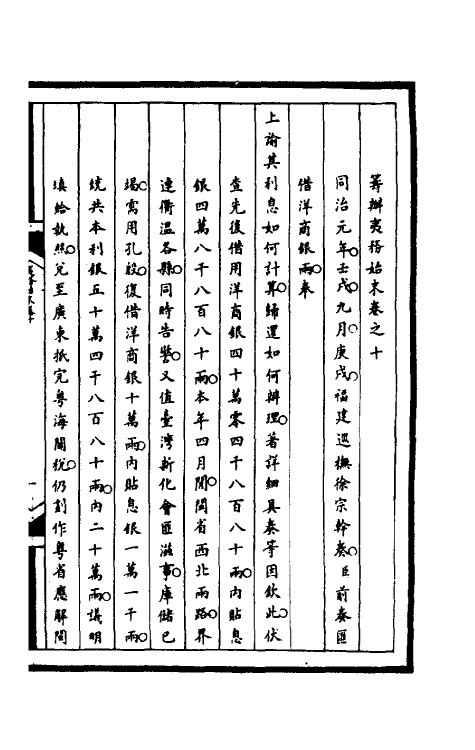 籌辦夷務始末卷之十
同治元年壬戌九月庚戌福建巡撫徐宗幹奏臣前奏匯
借洋商銀兩奉
上諭其利息如何計算歸還如何辦理著詳細具奏等因欽此伏
查先後借用洋商銀四十萬零四千八百八十兩內貼息
銀四萬八千八百八十兩本年四月閒閩省西北兩路界
連衢溫各縣同時告警又值臺灣彰化會匪滋事庫儲已
竭需用孔殷復借洋商銀十萬兩內貼息銀一萬一千兩
統共本利銀五十萬四千八百八十兩內二十萬兩議明
填給執照兌至廣東抵完粵海關稅仍劃作粵省應解閩